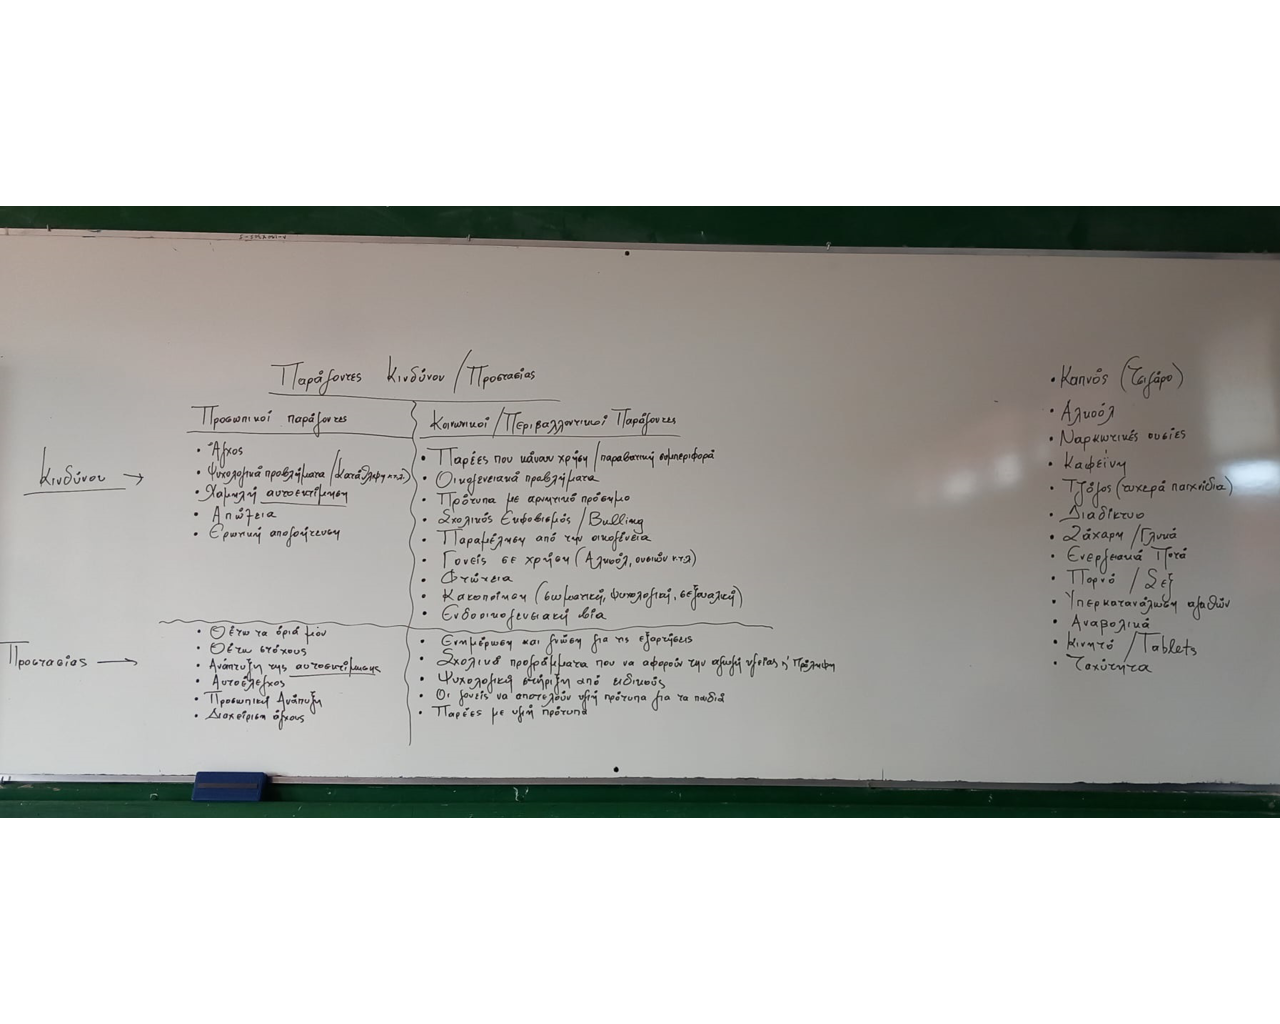 Παράγοντες Κινδύνου / Προστασίας
Προσωπικοί παράγοντες
Κοινωνικοί / Περιβαλλοντικοί Παράγοντες
Κινδύνου →
• Άγχος
• Ψυχολογικά προβλήματα / (Κατάθλιψη κ.τ.λ)
• Χαμηλή αυτοεκτίμηση
• Απώλεια
• Ερωτική απογοήτευση
• Παρέες που κάνουν χρήση / παραβατική συμπεριφορά
• Οικογενειακά προβλήματα
• Πρότυπα με αρνητικό πρόσημο
• Σχολικός Εκφοβισμός / Bulling
• Παραμέληση από την οικογένεια
• Γονείς σε χρήση (Αλκοόλ, ουσιών κ.τ.λ)
• Φτώχεια
• Κακοποίηση (σωματική, ψυχολογική, σεξουαλική)
• Ενδοοικογενειακή βία
Προστασίας →
• Θέτω τα όριά μου
• Θέτω στόχους
• Ανάπτυξη της αυτοεκτίμησης
• Αυτοέλεγχος
• Προσωπική Ανάπτυξη
• Διαχείριση άγχους
• Ενημέρωση και γνώση για τις εξαρτήσεις
• Σχολικά προγράμματα που να αφορούν την αγωγή υγείας ή πρόληψη
• Ψυχολογική στήριξη από ειδικούς
• Οι γονείς να αποτελούν υγιή πρότυπα για τα παιδιά
• Παρέες με υγιή πρότυπα
• Καπνός (Τσιγάρο)
• Αλκοόλ
• Ναρκωτικές ουσίες
• Καφεΐνη
• Τζόγος (τυχερά παιχνίδια)
• Διαδίκτυο
• Ζάχαρη / Γλυκά
• Ενεργειακά Ποτά
• Πορνό / Σεξ
• Υπερκατανάλωση αγαθών
• Αναβολικά
• Κινητό / Tablets
• Ταχύτητα